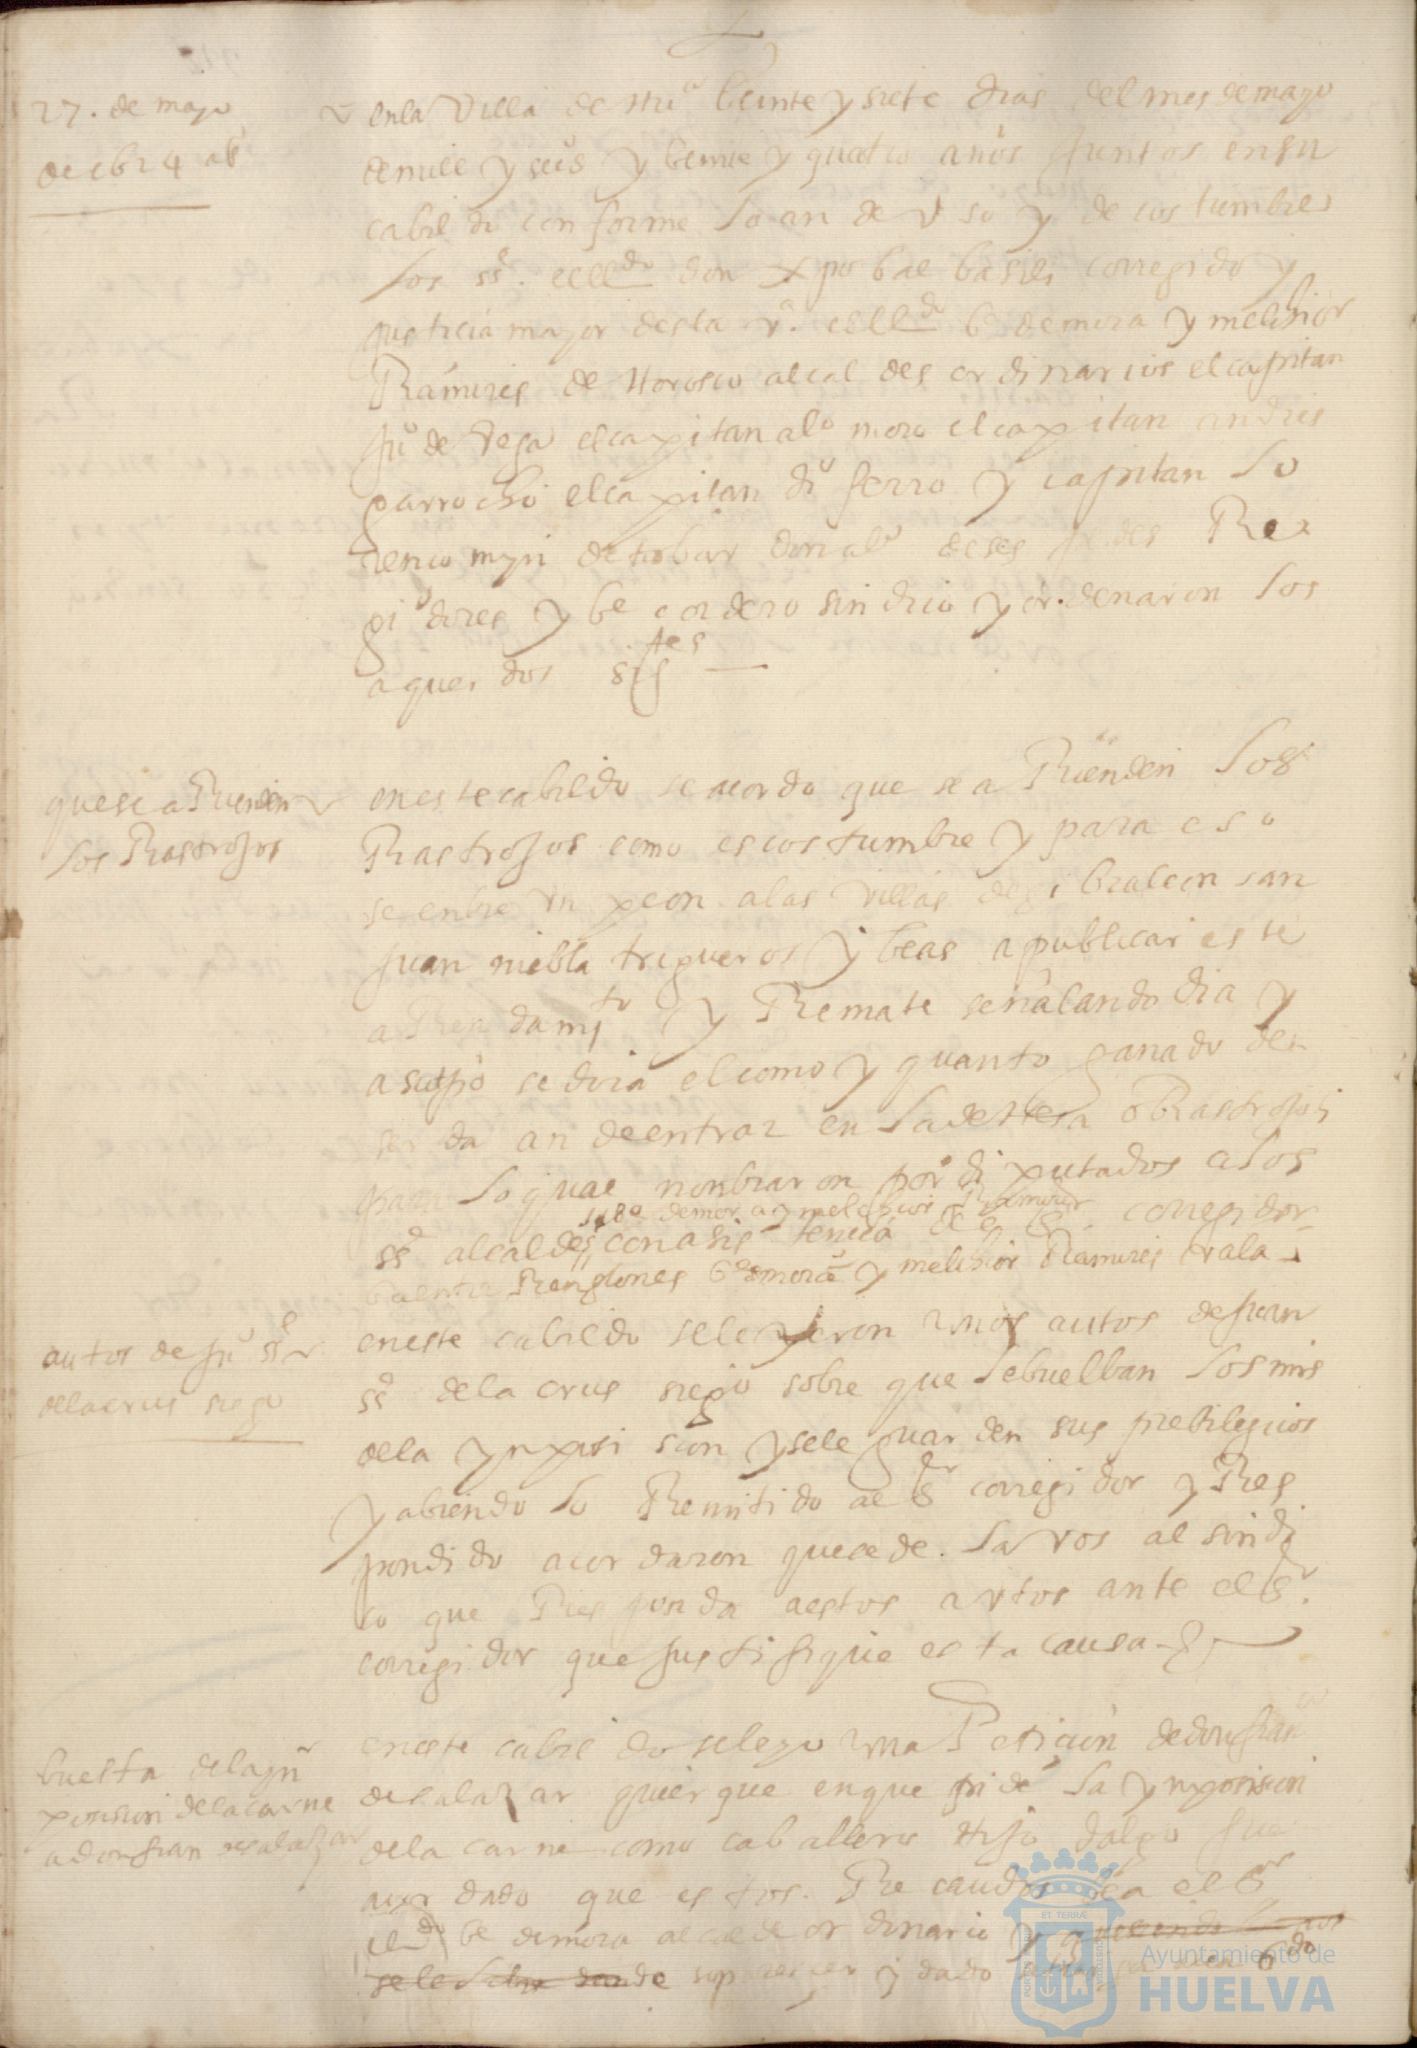 27. de mayo
de 1624 as
en la Villa de Hua beinte y siete dias del mes de mayo
de mill y seis y beinte y quatro años juntos en su
cabildo conforme lo an de vso y de costumbre
los ss. el lldo don xpobal basili corregido y
justicia mayor desta va. el lldo be de mora y melchior
Ramires de Horosco alcaldes ordinarios el capitan
juo de Vega el capitan alo moro el capitan andres
garrocho el capitan do ferro y capitan lo
renco de tobar don alo de ses Re
gidores y be cordero sindico y ordenaron los
aquerdos sigtes
que se a Rienden
los Rastrojos
en este cabildo se acordo que se a Rienden los
Rastrojos como es costumbre y para eso
se enbie vn peon a las villas de gibraleon san
juan niebla trigueros y beas a publicar este
a Rendamito y Remate señalando dia y
asimo se dira el como y quanto ganado de
serda an de entrar en la dehesa o Rastrojos
para lo qual nonbraron por diputados a los
be de mora y melchior Ramires
sso alcaldes con asistencia del sr. corregidor
entre Renglones be de mora y melchior Ramires vala
autos de juo ss
de la crus siego
en este cabildo se leyeron vnos autos de juan
ss de la crus siego sobre que le buelban los mrs
de la ynposision y se le guarden sus prebilegios
y abiendolo Remitido al sr corregidor y Res
pondido acordaron que se de la vos al sindi
co que Responda a estos avtos ante el sr.
corregidor que justifique esta causa
buelta de la yn
posision de la carne
a don juan de salazar
en este cabildo se leyo vna Peticion de don juan
de salazar quierque en que pide la ynposision
de la carne como caballero Hijo dalgo fue
acordado que estos Recaudos bea el sor
lldo be de mora alcalde ordinario y
pareser y dado
Ayuntamiento de
HUELVA